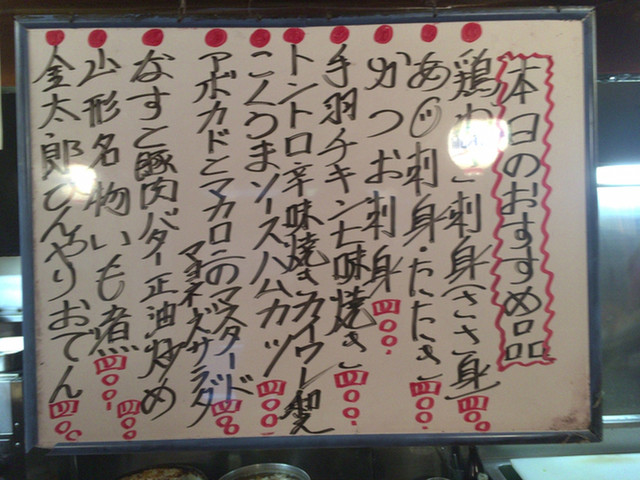 本日のおすすめ品
鶏わさ刺身(ささ身)四〇〇
あじ刺身・たたき四〇〇.
かつお刺身四〇〇.
手羽チキン七味焼き四〇〇.
トントロ辛味焼きカイワレ製
こくうまソースハムカツ四〇〇.
アボカドとマカロニのマスタード
マヨネーズサラダ四〇〇
なすと豚肉バター正油炒め四〇〇
山形名物いも煮四〇〇.
金太郎ひんやりおでん四〇〇